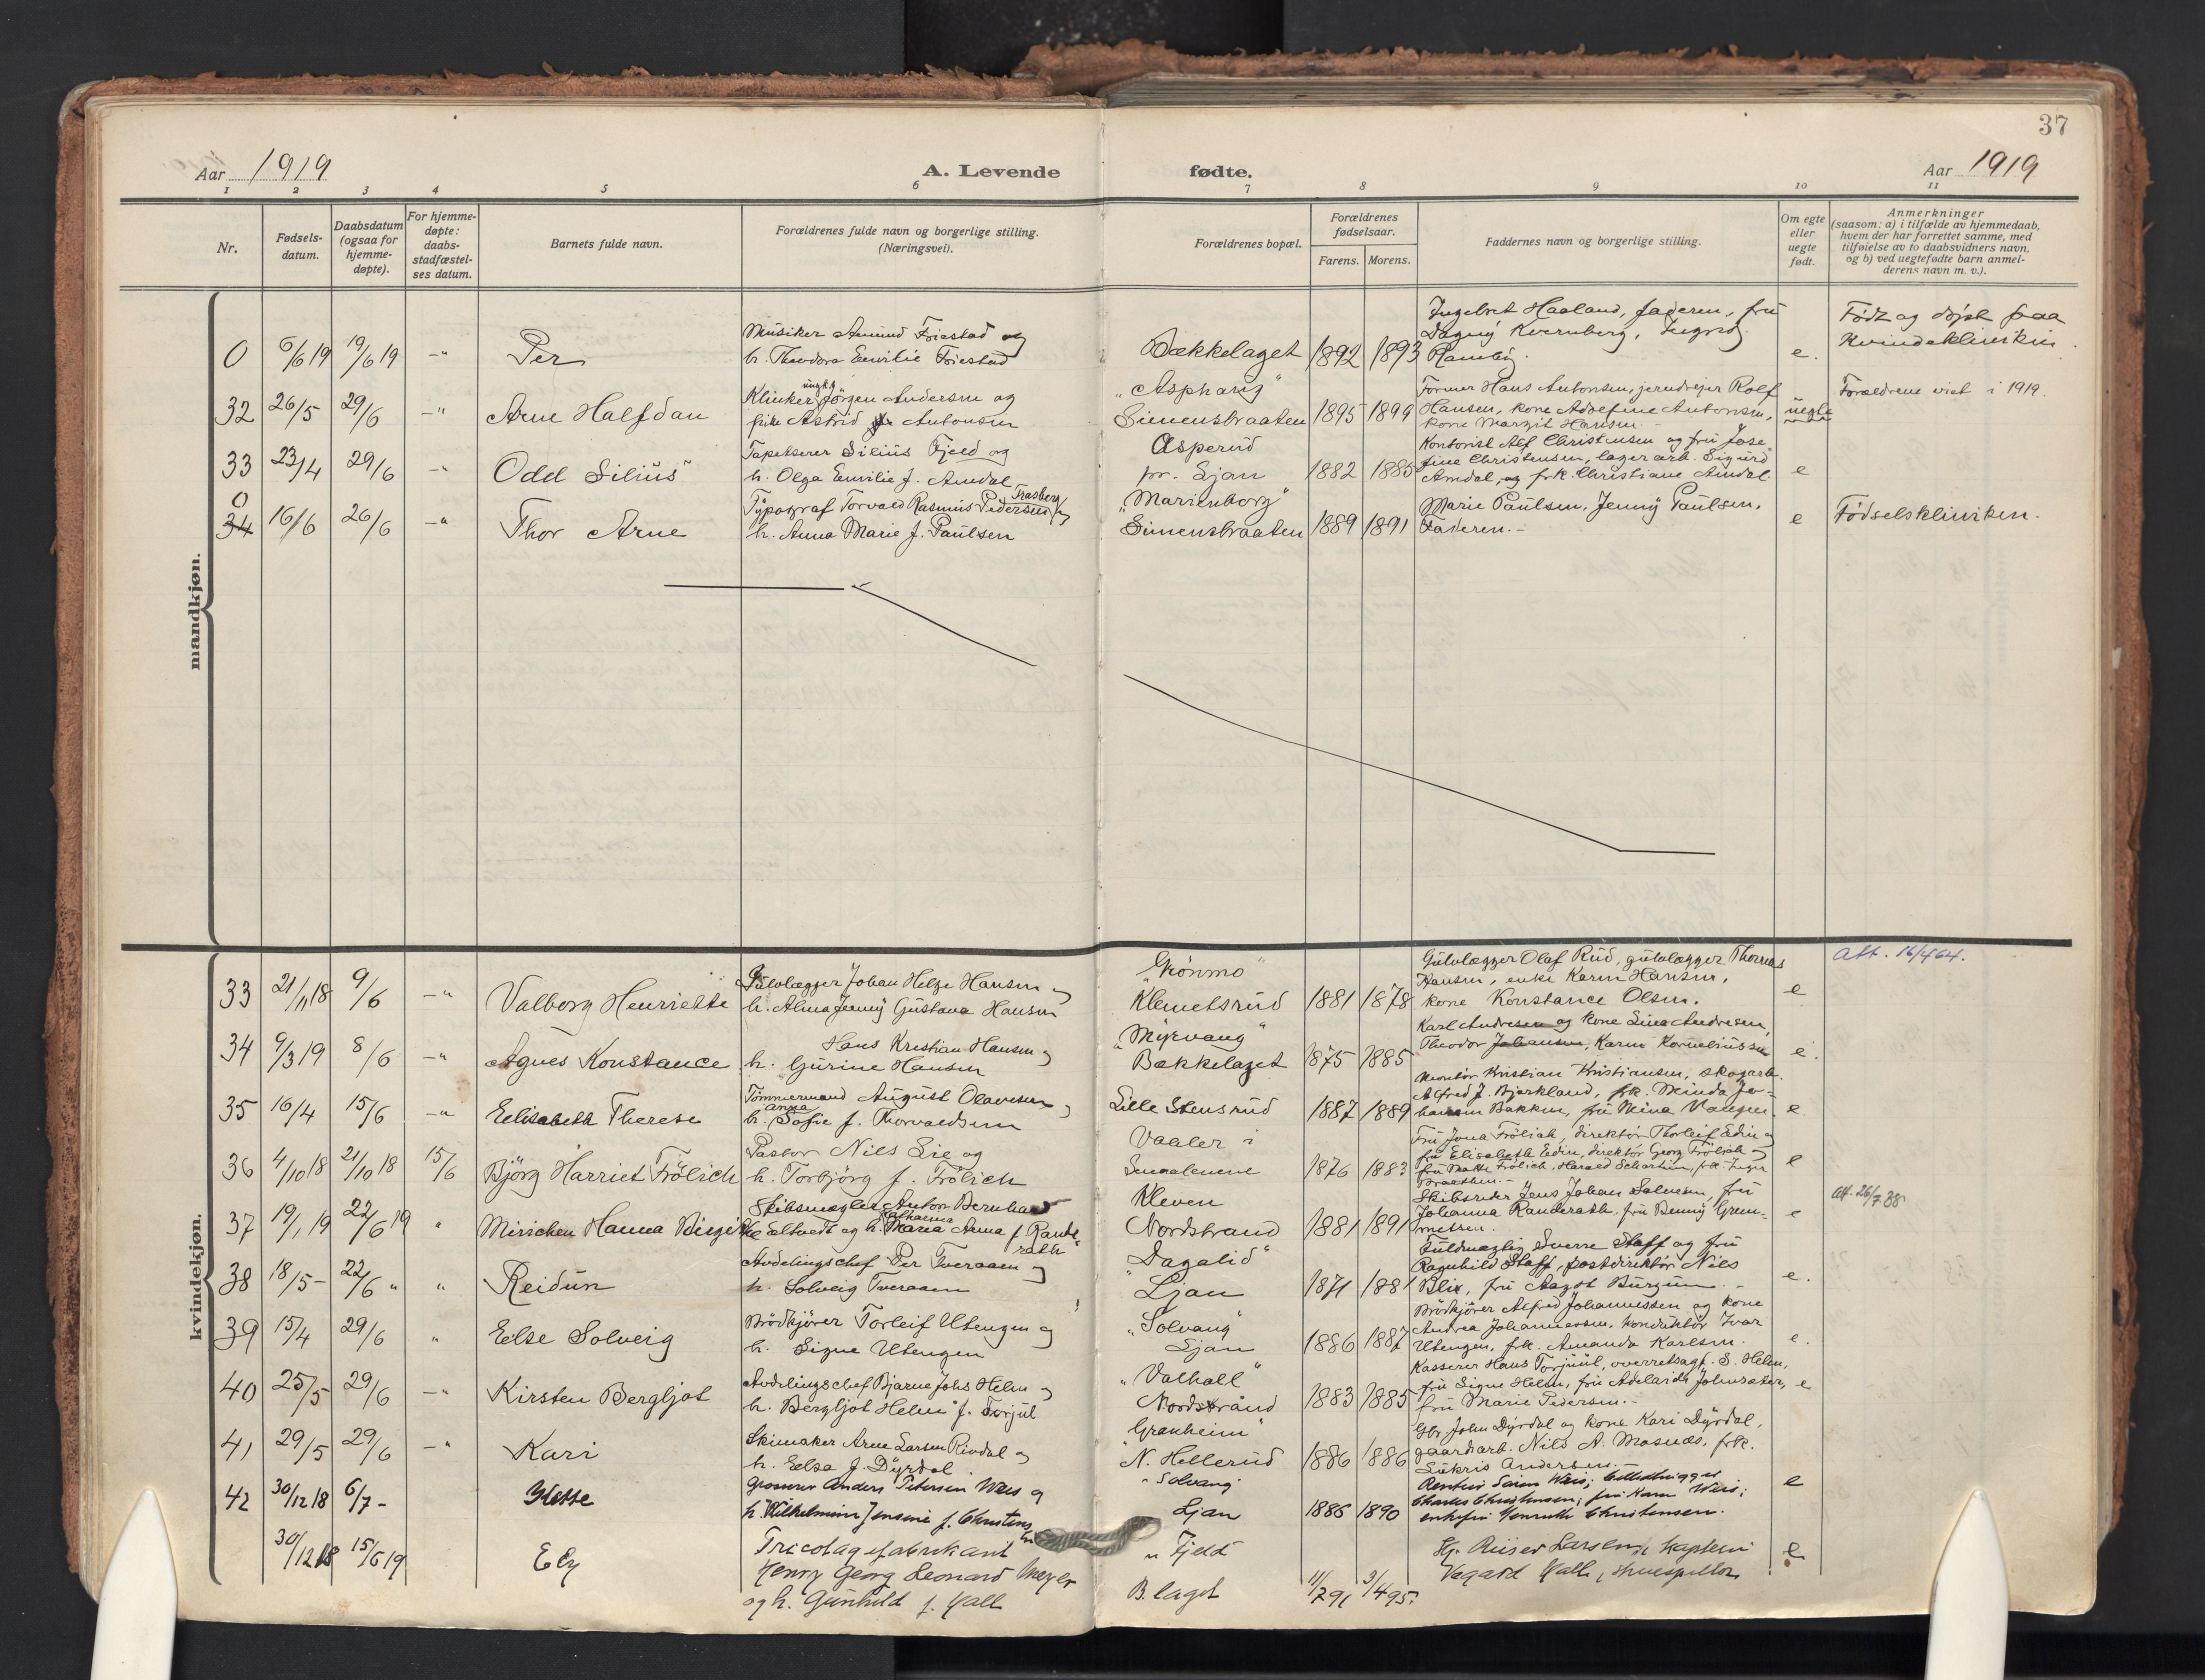 37
Aar 1919 A. Levende fødte. Aar 1919
1 2 3 4 5 6 7 8 9 10 11
Nr.
Fødsels-
datum.
Daabsdatum
(ogsaa for
hjemme-
døpte).
For hjemme-
døpte:
daabs-
stadfæstel-
ses datum.
Barnets fulde navn.
Forældrenes fulde navn og borgerlige stilling.
(Næringsvei).
Forældrenes bopæl.
Forældrenes
fødselsaar.
Farens. Morens.
Faddernes navn og borgerlige stilling.
Om egte
eller
uegte
født.
Anmerkninger
(saasom: a) i tilfælde av hjemmedaab,
hvem der har forrettet samme, med
tilføielse av to daabsvidners navn,
og b) ved uegtefødte barn anmel-
derens navn m. v.).
mandkjøn.
0 6/6 19 19/6 19 -"- Per
Musiker Amund Friestad og
h. Theodora Emilie Friestad
Bækkelaget 1892 1893
Ingebret Haaland, faderen, fru
Dagny Kvernberg, Ingrid
e.
Født og døpt paa
Kvindeklinikken.
32 26/5 29/6 -"- Arne Halfdan
Klinker ungk. Jörgen Andersen og
pike Astrid Antonsen
"Asphaug"
Simensbraaten 1895 1899
Former Hans Antonsen, jerndreyer Rolf
Hansen, kone Adolfine Antonsen,
kone Margit Hansen
uegte
Forældrene viet i 1919.
33 23/4 29/6 -"- Odd Silius
Tapetserer Silius Fjeld og
h. Olga Emilie f. Amdal
Asperud
pr. Ljan 1882 1885
Kontorist Alf Christensen og fru Jose-
fine Christensen, lagerarb. Sigurd
Amdal, og frk. Christiane Amdal.
e
0
34 16/6 26/6 -"- Thor Arne
Typograf Torvald Rasmus Pedersen Trasberg og
h. Anna Marie f. Paulsen
"Marienborg"
Simensbraaten 1889 1891
Marie Paulsen, Jenny Paulsen,
Faderen.-
e
Fødselsklinikken.
kvindekjøn.
33 21/11 18 9/6 -"- Valborg Henriette
Gulvlægger Johan Helge Hansen og
h. Alma Jenny Gustava Hansen
"Grønmo"
Klemetsrud 1881 1878
Gulvlægger Olaf Rud, gulvlægger Thomas
Hansen, enke Karen Hansen,
kone Konstance Olsen.
e
Att. 16/4 64.
34 9/3 19 8/6 -"- Agnes Konstance
Hans Kristian Hansen og
h. Gurine Hansen
"Myrvang"
Bækkelaget 1875 1885
Karl Andresen og kone Lina Andresen,
Theodor Johansen, Karen Korneliussen
e.
35 16/4 15/6 -"- Elisabeth Therese
Tømmermand August Olavesen og
h. Anna Sofie f. Thorvaldsen
Lille Stensrud 1887 1889
Montør Kristian Kristiansen, skogarb.
Alfred J. Bjerkland, frk. Minda Jo-
hansen Bakken, fru Mina Vangen.
e
36 4/10 18 21/10 18 15/6 Björg Harriet Frölich
Pastor Nils Lie og
h. Torbjörg f. Frölich
Vaaler i
Smaalenene 1876 1883
Fru Jona Frölich, direktör Thorleif Edin og
fru Elisabeth Edin, direktör Georg Frölich og
e
37 19/1 19 22/6 19 " Mirschen Hanna Birgitte
Skibsmægler Anton Bernhard
Eltvedt og h. Katharina Maria Anna f. Rande-
rath
Kleven
Nordstrand 1881 1891
Skibsreder Jens Johan Salvesen, fru
Johanna Randerath, fru Benny Grem-
mertsen.
e
Att. 26/7 38
38 18/5 - 22/6 " " Reidun
Avdelingschef Per Tveraaen og
h. Solveig Tveraaen
"Dagalid"
Ljan 1871 1881
Fuldmægtig Sverre Staff og fru
Ragnhild Staff, postdirektör Nils
Blix, fru Aagot Burgum.-
e.
39 15/4 29/6 " Else Solveig
Brödkjörer Torleif Utengen og
h. Signe Utengen
"Solvang"
Ljan 1886 1887
Brödkjörer Alfred Johannessen og kone
Andrea Johannessen, konduktör Ivar
Utengen, frk. Amanda Karlsen.
e.
40 25/5 29/6 -"- Kirsten Bergljot
Avdelingschef Bjarne Johs Helm og
h. Bergljot Helm f. Torjul
"Valhall"
Nordstrand 1883 1885
Kasserer Hans Torjuul, overretssagf. S. Helm,
fru Signe Helm, fru Adelaide Johnsæter,
fru Marie Pedersen.-
e
41 29/5 29/6 -"- Kari
Skimaker Arne Larsen Rindal og
h. Elsa f. Dyrdal.
"Granheim"
N. Hellerud 1886 1886
Gbr. John Dyrdal og kone Kari Dyrdal,
gaardsarb. Nils A. Mosnæs, frk.
Andersen.-
42 30/12 18 6/7 - Mette
Grosserer Anders Petersen Weis og
h. Wilhelmine Jensine f. Christensen
"Solvang"
Ljan 1886 1890
Charles Christensen; fru Karen Weis;
enkefru Henriette Christensen.
e
30/12 18 15/6 19 Ely
Tricotagefabrikant
Henry Georg Leonard Meyer
og h. Gunhild f. Hall
"Fjeld"
B.laget 11/7 91 3/4 95.
Hj. Riiser Larsen, kaptein
Vagard Hall, skuespiller
e